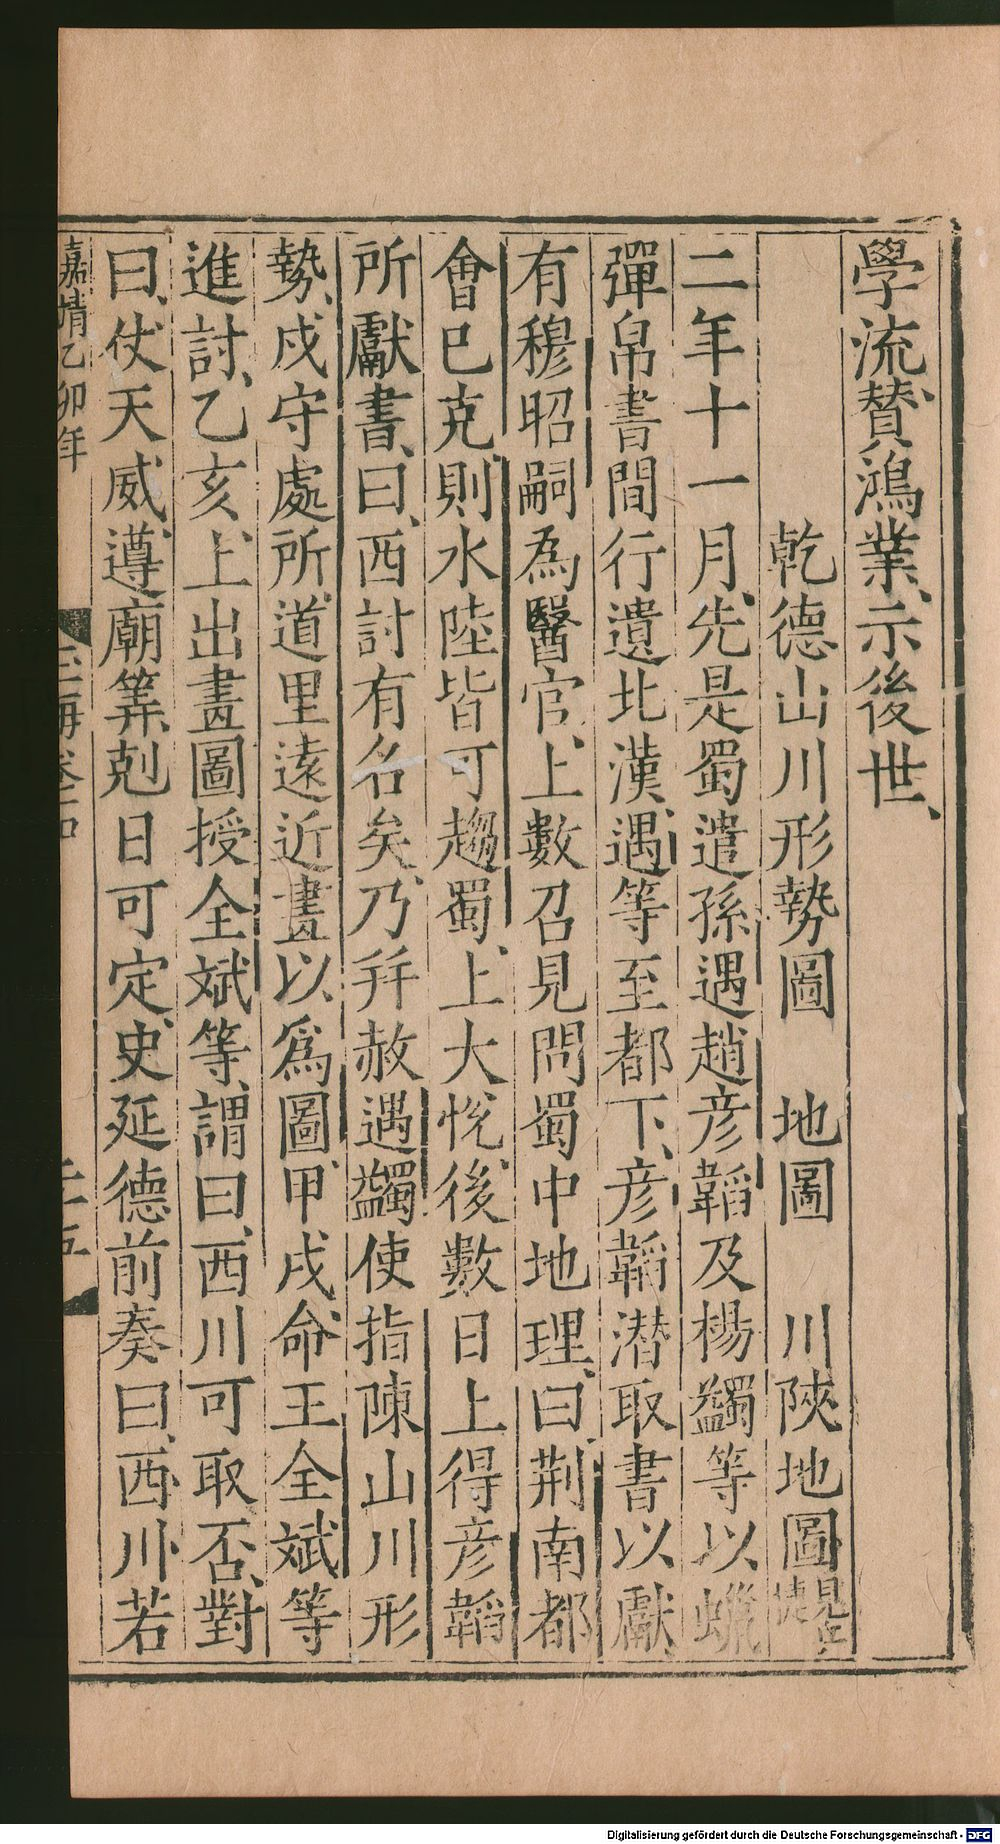 學流賛鴻業、示後世、
乾德山川形勢圖　地圖　川陝地圖
二年十一月、先是蜀遣孫遇趙彦韜及楊蠲等以蠟
彈帛書間行遺北漢、遇等至都下、彦韜潜取書以獻、
有穆昭嗣為醫官、上數召見問蜀中地理、曰、荆南都
會已克、則水陸皆可趨蜀、上大悅、後數日上得彦韜
所獻書、曰、西討有名矣、乃并赦遇蠲使指陳山川形
勢、戍守處所、道里遠近畫以為圖、甲戌、命王全斌等
進討、乙亥、上出畫圖授全斌等、謂曰、西川可取否、對
曰、仗天威、遵廟筭、剋日可定、史延德前奏曰、西川若
嘉靖乙卯年
玉海卷十四
二十五
Digitalisierung gefördert durch die Deutsche Forschungsgemeinschaft - DFG